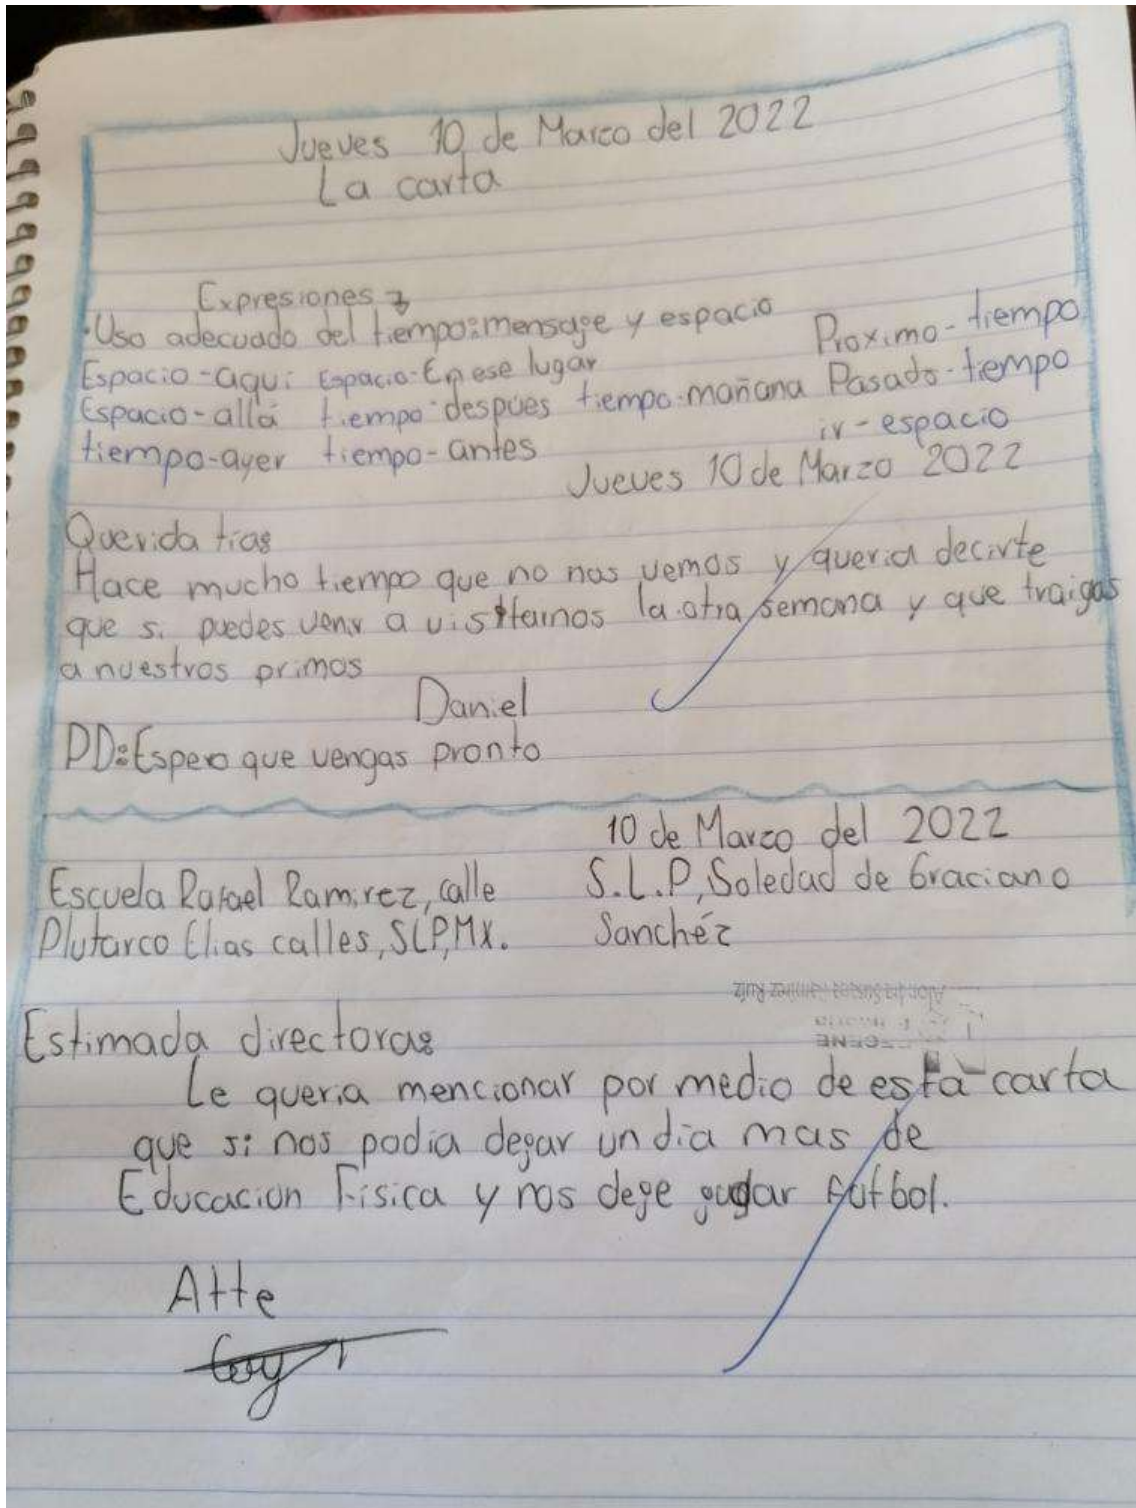 Jueves 10 de Marzo del 2022
La carta
Expresiones
•Uso adecuado del tiempo: mensaje y espacio
Proximo-tiempo
Espacio-aqui Espacio-En ese lugar
Espacio-allá tiempo-despues tiempo-mañana Pasado-tiempo
tiempo-ayer tiempo-antes ir-espacio
Jueves 10 de Marzo 2022
Querida tia:
Hace mucho tiempo que no nos vemos y queria decirte
que si puedes venir a visitarnos la otra semana y que traigas
a nuestros primos
Daniel
PD: Espero que vengas pronto
10 de Marzo del 2022
Escuela Rafael Ramirez, calle S.L.P, Soledad de Graciano
Plutarco Elias calles, SLP, MX. Sanchéz
Estimada directora:
Le queria mencionar por medio de esta carta
que si nos podia dejar un dia mas de
Educacion Fisica y nos deje jugar futbol.
Atte